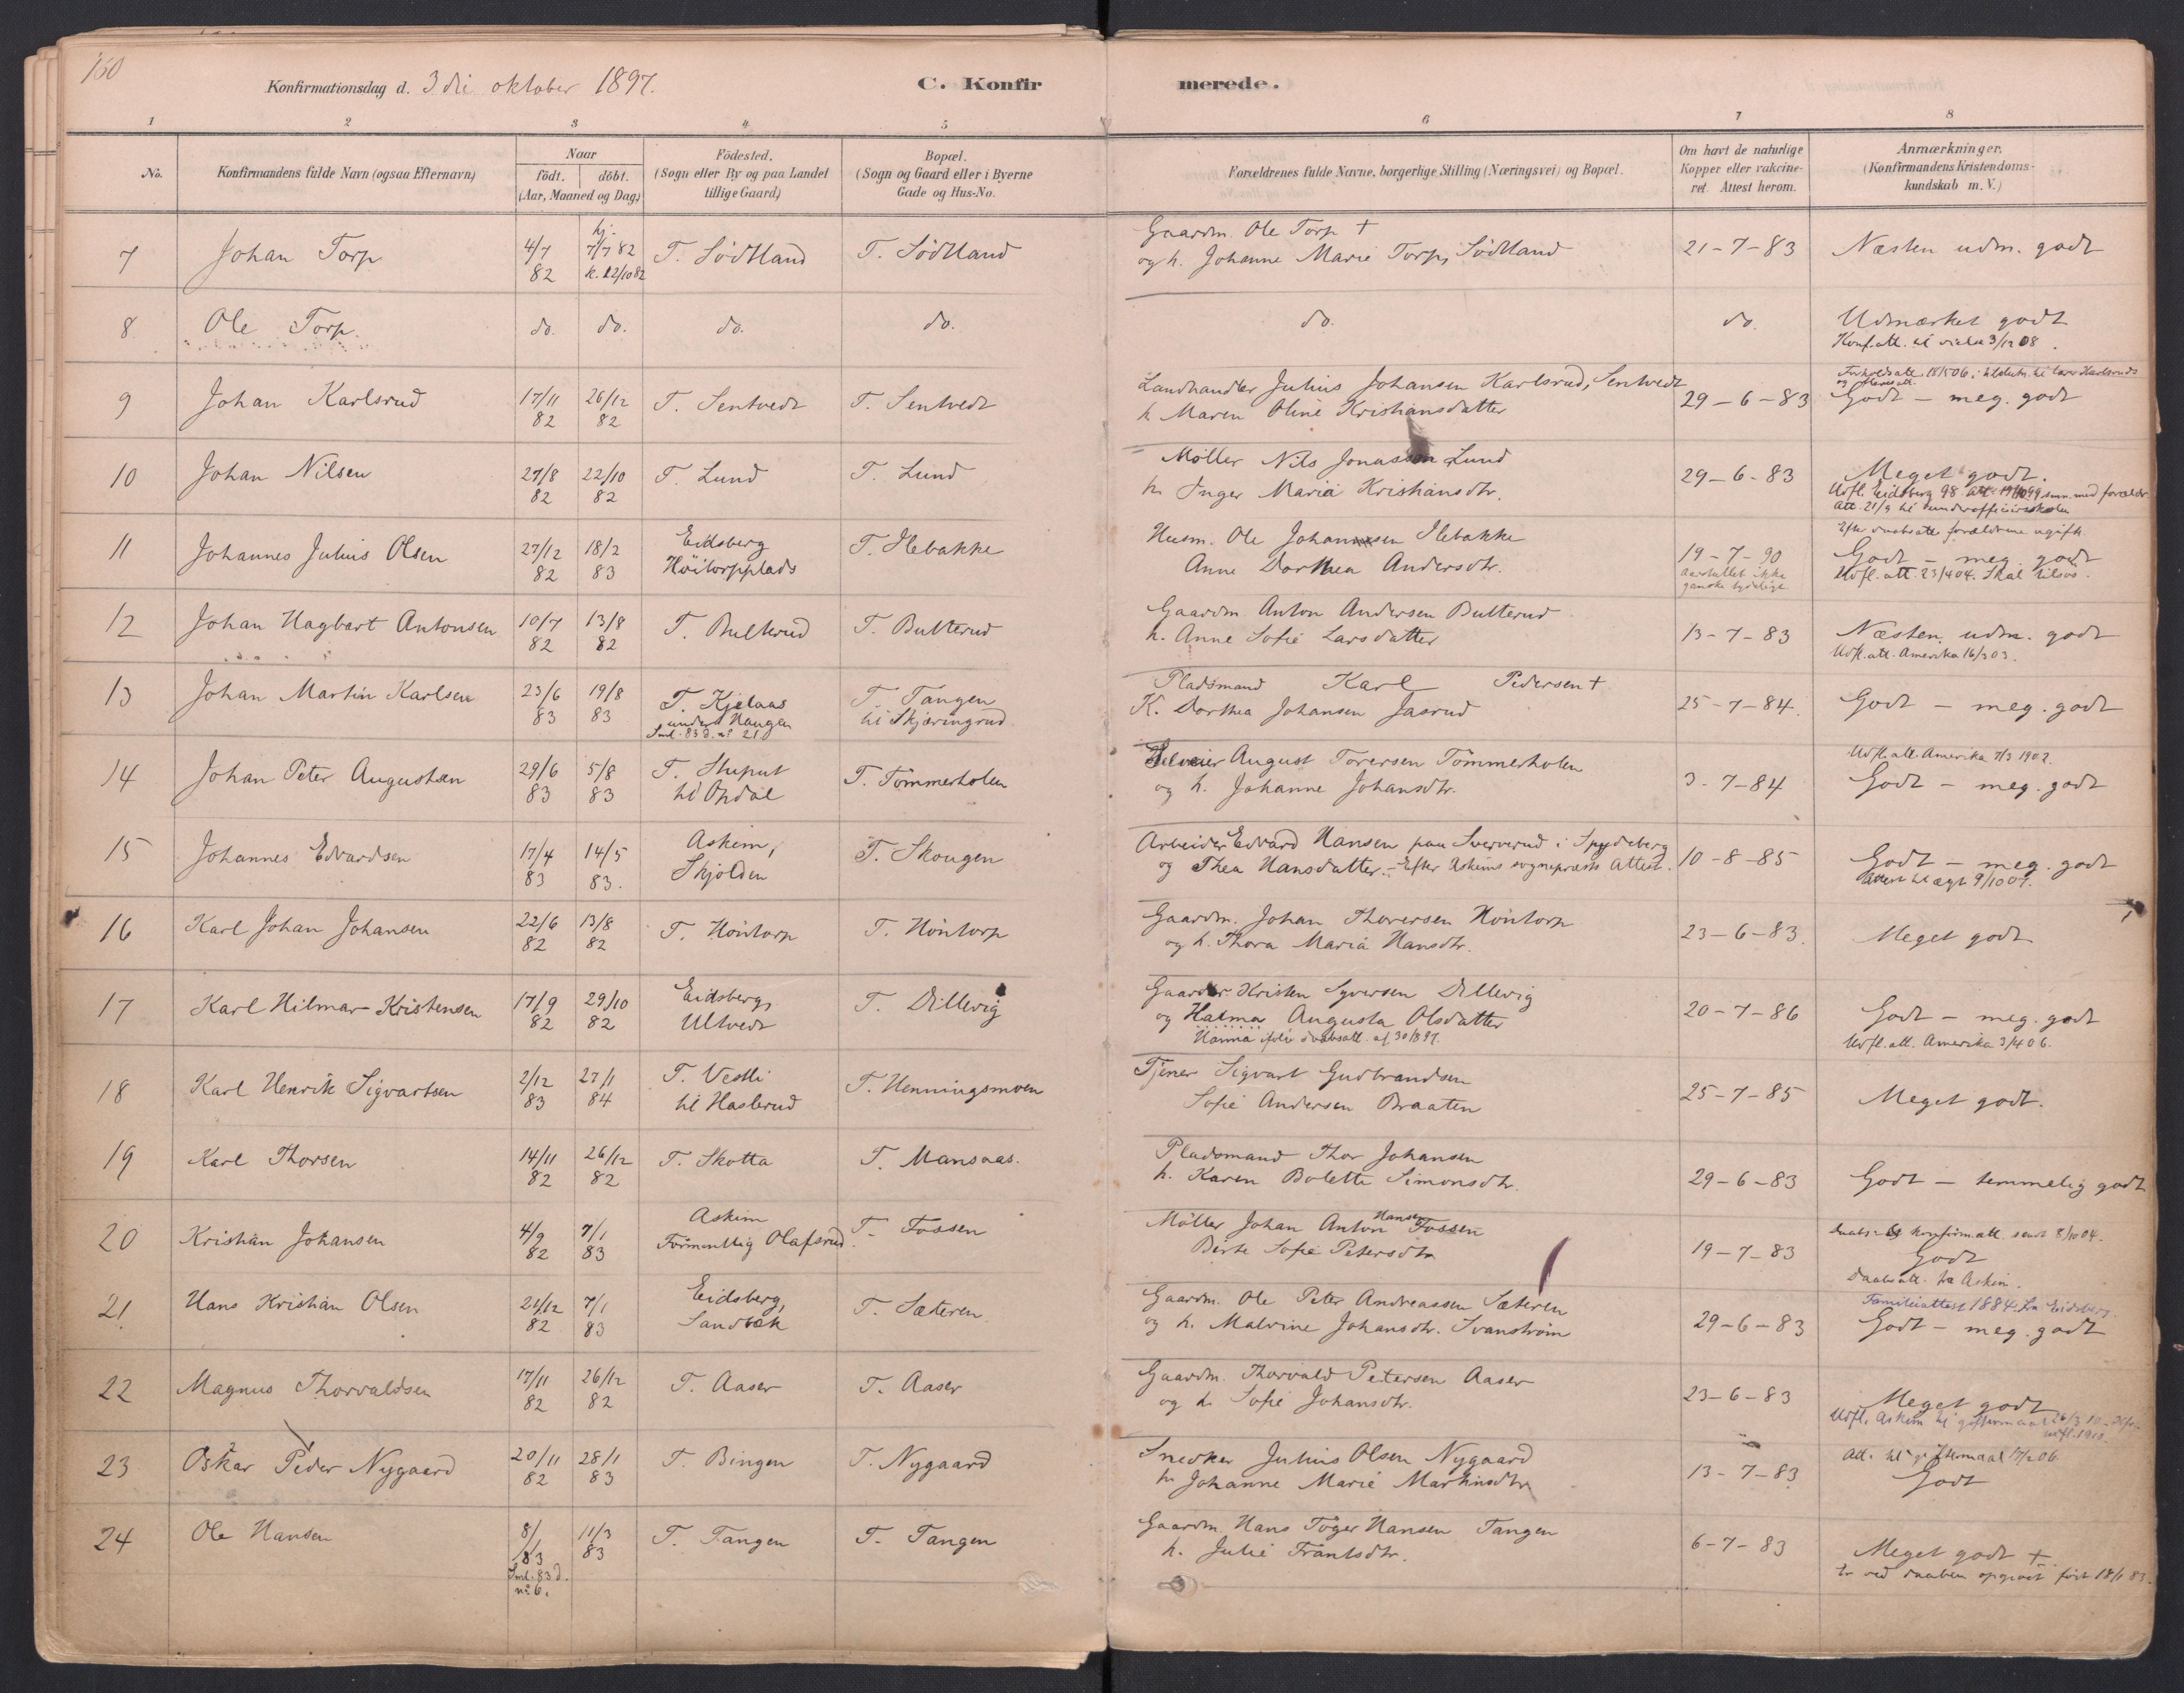 160
Konfirmationsdag d. 3die oktober 1897.
C. Konfirmerede.
1 2 3 4 5 6 7 8
No.
Konfirmandens fulde Navn (ogsaa Efternavn)
Naar
födt. döbt.
(Aar, Maaned og Dag)
Födested.
(Sogn eller By og paa Landet
tillige Gaard)
Bopæl.
(Sogn og Gaard eller i Byerne
Gade og Hus-No.
Forældrenes fulde Navne, borgerlige Stilling (Næringsvei) og Bopæl.
Om havt de naturlige
Kopper eller vakcine-
ret. Attest herom.
Anmærkninger.
(Konfirmandens Kristendoms-
kundskab m. V.)
7 Johan Torp 4/7 82 hj. 7/7 82 k. 22/10 82 T. Södtland T. Södtland
Gaardm. Ole Torp +
og h. Johanne Marie Torp, Södtland
21-7-83 Næsten udm. godt
8 Ole Torp do. do. do. do. do. do. Udmærket godt
Konf.att. til vielse 3/12 08.
9 Johan Karlsrud 17/11 82 26/12 82 T. Sentvedt T. Sentvedt
Landhandler Julius Johansen Karlsrud, Sentvedt
h Maren Oline Kristiansdatter
29-6-83 Godt - meg. godt
10 Johan Nilsen 27/8 82 22/10 82 T. Lund T. Lund
Möller Nils Jonassen Lund
h. Inger Maria Kristiansdtr.
29-6-83 Meget godt.
Udfl. Eidsberg 98
Att. 21/9 til underofficersskolen
11 Johannes Julius Olsen 27/12 82 18/2 83 Eidsberg Höitorpplads T. Ilebakke
Husm. Ole Johannesen Ilebakke
Anne Dorthea Andersdtr.
19-7-90
aarstallet ikke
ganske tydelige
Efter daabsatt. forældrene ugifte
Godt - meg. godt
Udfl. att. 23/4 04.
12 Johan Hagbart Antonsen 10/7 82 13/8 82 T. Bulterud T. Bulterud
Gaardm. Anton Andersen Bulterud
h. Anne Sofie Larsdatter
13-7-83 Næsten udm. godt
Udfl. att. Amerika 16/3 03.
13 Johan Martin Karlsen 23/6 83 19/8 83 T. Kjelaas under Haugen
Sml. 83 d. no 21
T. Tangen til Skjæringrud
Pladsmand Karl Pedersen +
K. Dorthea Johansen Jasrud
25-7-84. Godt - meg. godt
14 Johan Peter Augustsen 29/6 83 5/8 83 T. Stuput til Opdal T. Tömmerholen
August Torersen Tömmerholen
og h. Johanne Johansdtr.
3-7-84
Udfl. att. Amerika 7/3 1902.
Godt - meg. godt
15 Johannes Edvardsen 17/4 83 14/5 83. Askim, Skjolden T. Skougen
Arbeider Edvard Hansen paa Sververud i Spydeberg
og Thea Hansdatter. - Efter Askims sogneprests Attest.
10-8-85 Godt - meg. godt
Attest til ægt. 9/10 07.
16 Karl Johan Johansen 22/6 82 13/8 82 T. Höntorp T. Höntorp
Gaardm. Johan Thoresen Höntorp
og h. Thora Maria Hansdtr.
23-6-83. Meget godt
17 Karl Hilmar Kristensen 17/9 82 29/10 82 Eidsberg, Ultvedt T. Dillevig
Kristen Syversen Dillevig
og Halma Augusta Olsdatter
Hanna ifölge daabsatt. af 30/8 97.
20-7-86 Godt - meg. godt
Udfl. att. Amerika 3/4 06.
18 Karl Henrik Sigvartsen 2/12 83 27/1 84 T. Vestli til Haslerud T. Henningsmoen
Tjener Sigvart Gudbrandsen
Sofie Andersen Braaten
25-7-85 Meget godt.
19 Karl Thorsen 14/11 82 26/12 82 T. Skotta T. Mansaas.
Pladsmand Thor Johansen
h. Karen Bolette Simonsdtr.
29-6-83 Godt - temmelig godt
20 Kristian Johansen 4/9 82 7/1 83 Askim Olafsrud T. Fossen
Möller Johan Anton Hansen Fossen
Berte Sofie Petersdtr
19-7-83
Daabs- og konfirm.att. sendt 8/10 04.
Godt
Daabsatt. fra Askim.
21 Hans Kristian Olsen 21/12 82 7/1 83 Eidsberg, Sandbæk T. Sæteren
Gaardm. Ole Peter Andreassen Sæteren
og h. Malvine Johansdtr. Svanström
29-6-83
Familieattest 1884 fra Eidsberg.
Godt - meg. godt
22 Magnus Thorvaldsen 17/11 82 26/12 82 T. Aaser T. Aaser
Gaardm. Thorvald Petersen Aaser
og h. Sofie Johansdtr.
23-6-83 Meget godt
Udfl. Askim til giftermaal 26/3 10
23 Oskar Peder Nygaard 20/11 82 28/1 83 T. Bingen T. Nygaard
Snedker Julius Olsen Nygaard
h. Johanne Marie Martinsdtr
13-7-83
Att. til giftermaal 17/2 06
Godt
24 Ole Hansen 8/1 83 11/3 83 T. Tangen T. Tangen
Sml. 83 d. no 6.
Gaardm. Hans Töger Hansen Tangen
h. Julie Frantsdtr.
6-7-83 Meget godt +
Er ved daaben opgivet födt 18/1 83.